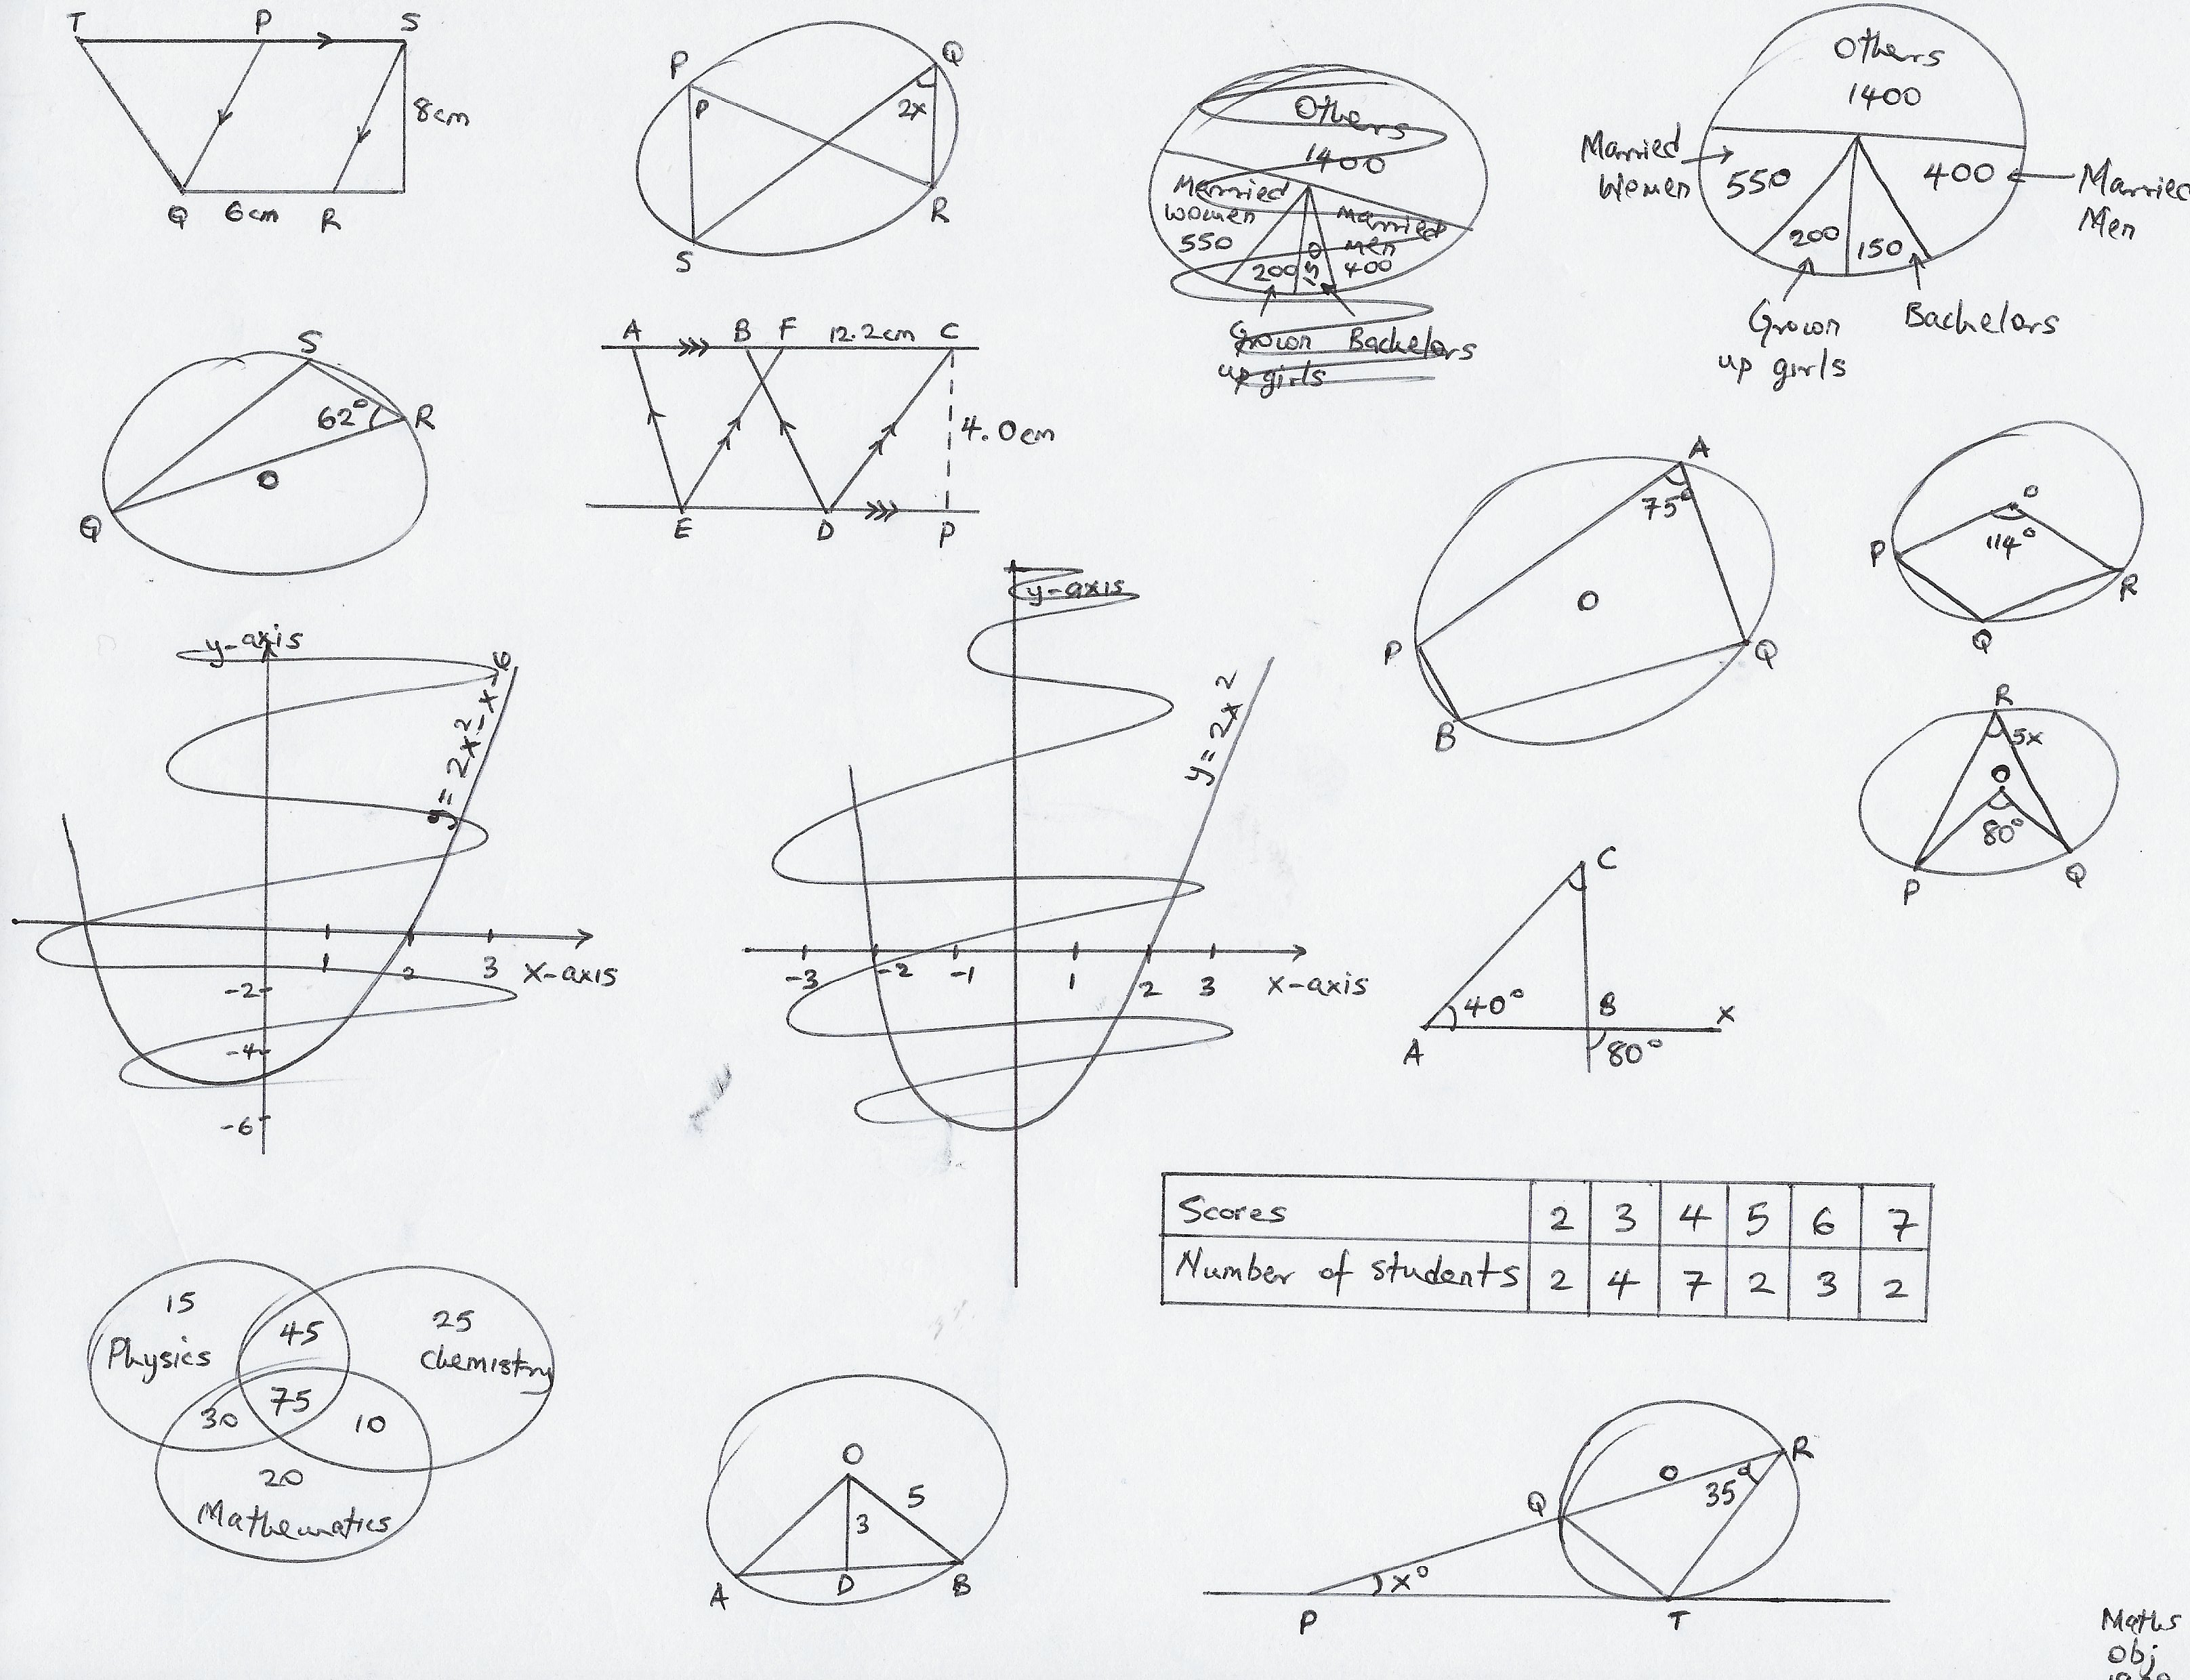 T P S
8cm
Q 6cm R
P Q
P 2x
R
S
Others
1400
Married
women
550
Married
men
400
200
150
Grown
up girls
Bachelors
Others
1400
Married
Women
550
400
Married
Men
200
150
Grown
up girls
Bachelors
S
62° R
O
Q
A B F 12.2cm C
4.0cm
E D P
A
75°
O
P Q
B
O
P 114°
R
Q
R
5x
O
80°
P Q
y-axis
y = 2x² - x - 6
1 2 3 x-axis
-2
-4
-6
y-axis
y = 2x²
-3 -2 -1 1 2 3 x-axis
C
40° B x
A 80°
Scores 2 3 4 5 6 7
Number of students 2 4 7 2 3 2
15
Physics
45
25
chemistry
75
30 10
20
Mathematics
O
5
3
A D B
R
O
35°
Q
x°
P T
Maths
obj